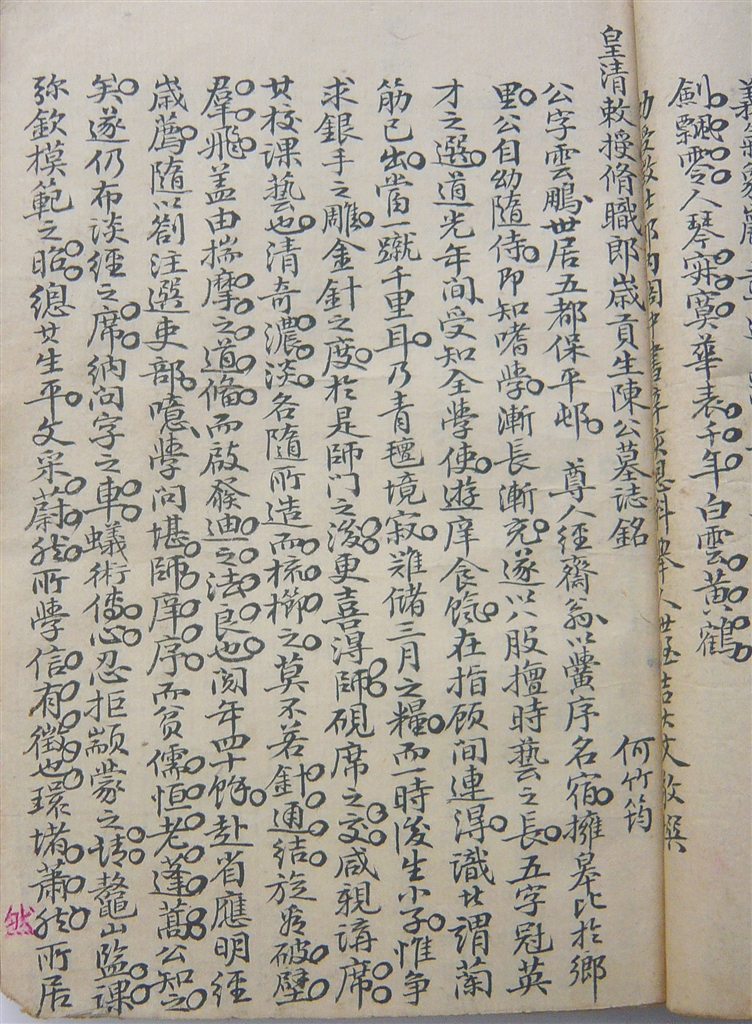 劍飄零人琴寂寞華表千年白雲黃鶴
皇清敕授脩職郎歲貢生陳公墓誌銘
何竹筠
公字雲鵬世居五都保平邨 尊人經齋翁以黌序名宿擁皋比於鄉
里公自幼隨侍即知嗜學漸長漸充遂以八股擅時藝之長五字冠英
才之選道光年間受知全學使遊庠食餼在指顧間連得識者謂蘭
筋已出當一蹴千里耳乃青氊境寂難儲三月之糧而一時後生小子惟爭
求銀手之雕金針之度於是師門之浚更喜得師硯席之交咸親講席
其校課藝也清奇濃淡各隨所造而梳櫛之莫不若針通結旋為破壁
羣飛蓋由揣摩之道備而啟發迪之法良也閱年四十餘赴省應明經
歲薦隨以劄注選吏部噫學問堪師庠序而貧儒恒老蓬蒿公知之
矣遂仍布談經之席納問字之車蟻術傳心忍拒顓蒙之請鼇山監課
弥欽模範之昭總其生平文采蔚然所學信有徵也環堵蕭然所居
然